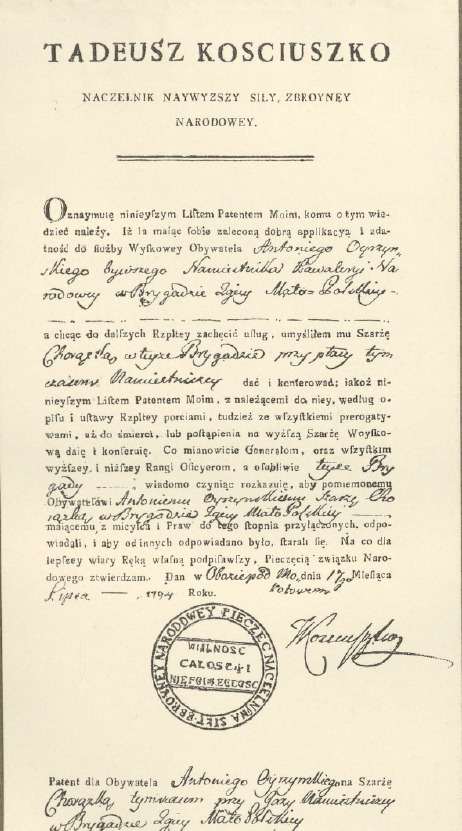 TADEUSZ KOSCIUSZKO
NACZELNIK NAYWYZSZY SIŁY, ZBROYNEY
NARODOWEY.
Oznaymuię ninieyſzym Liſtem Patentem Moim, komu o tym wie-
dzieć należy. Iż ia maiąc ſobie zaleconą dobrą applikacyą i zda-
tność do ſłużby Wyſkowey Obywatela Antoniego Ogrzyn
skiego bywszego Namiestnika Kawaleryi Na
rodowey w Brygadzie 2giey Mało Polskiey
a chcąc do dalſzych Rzpltey zachęcić uſług, umyśliłem mu Szarżę
Chorążską w teyże Brygadzie przy płacy tym
czasem Namiestniczey dać i konferować; iakoż ni-
nieyſzym Liſtem Patentem Moim, z należącemi do niey, według o-
piſu i uſtawy Rzpltey porciami, tudzież ze wſzyſtkiemi prerogaty-
wami, aż do śmierci, lub poſtąpienia na wyżſzą Szarżę Woyſko-
wą daię i konferuię. Co mianowicie Generałom, oraz wſzyſtkim
wyżſzey, i niżſzey Rangi Oficyerom, a oſobliwie teyże Bry
gady wiadomo czyniąc rozkazuię, aby pomienionemu
Obywatelowi Antoniemu Ogrzynskiemu Szarżę Cho
rążską w Brygadzie 2giey Mało Polskiey
maiącemu, z mieyſca i Praw do tego ſtopnia przyłączonych, odpo-
wiadali, i aby od innych odpowiadano było, ſtarali ſię. Na co dla
lepſzey wiary Ręką własną podpiſawſzy, Pieczęcią związku Naro-
dowego ztwierdzam. Dan w Obozie pod Mo dnia 17 Mieſiąca
kotowem
Lipca 1794 Roku.
PIECZĘC NACZELNA SIŁY ZBROYNEY NARODOWEY
WOLNOSC
CAŁOSC I
NIEPODLEGŁOSC
Kosciuszko
Patent dla Obywatela Antoniego Ogrzynskiego na Szarżę
Chorążską tymczasem przy Namiestniczey
w Brygadzie 2giey Mało Polskiey